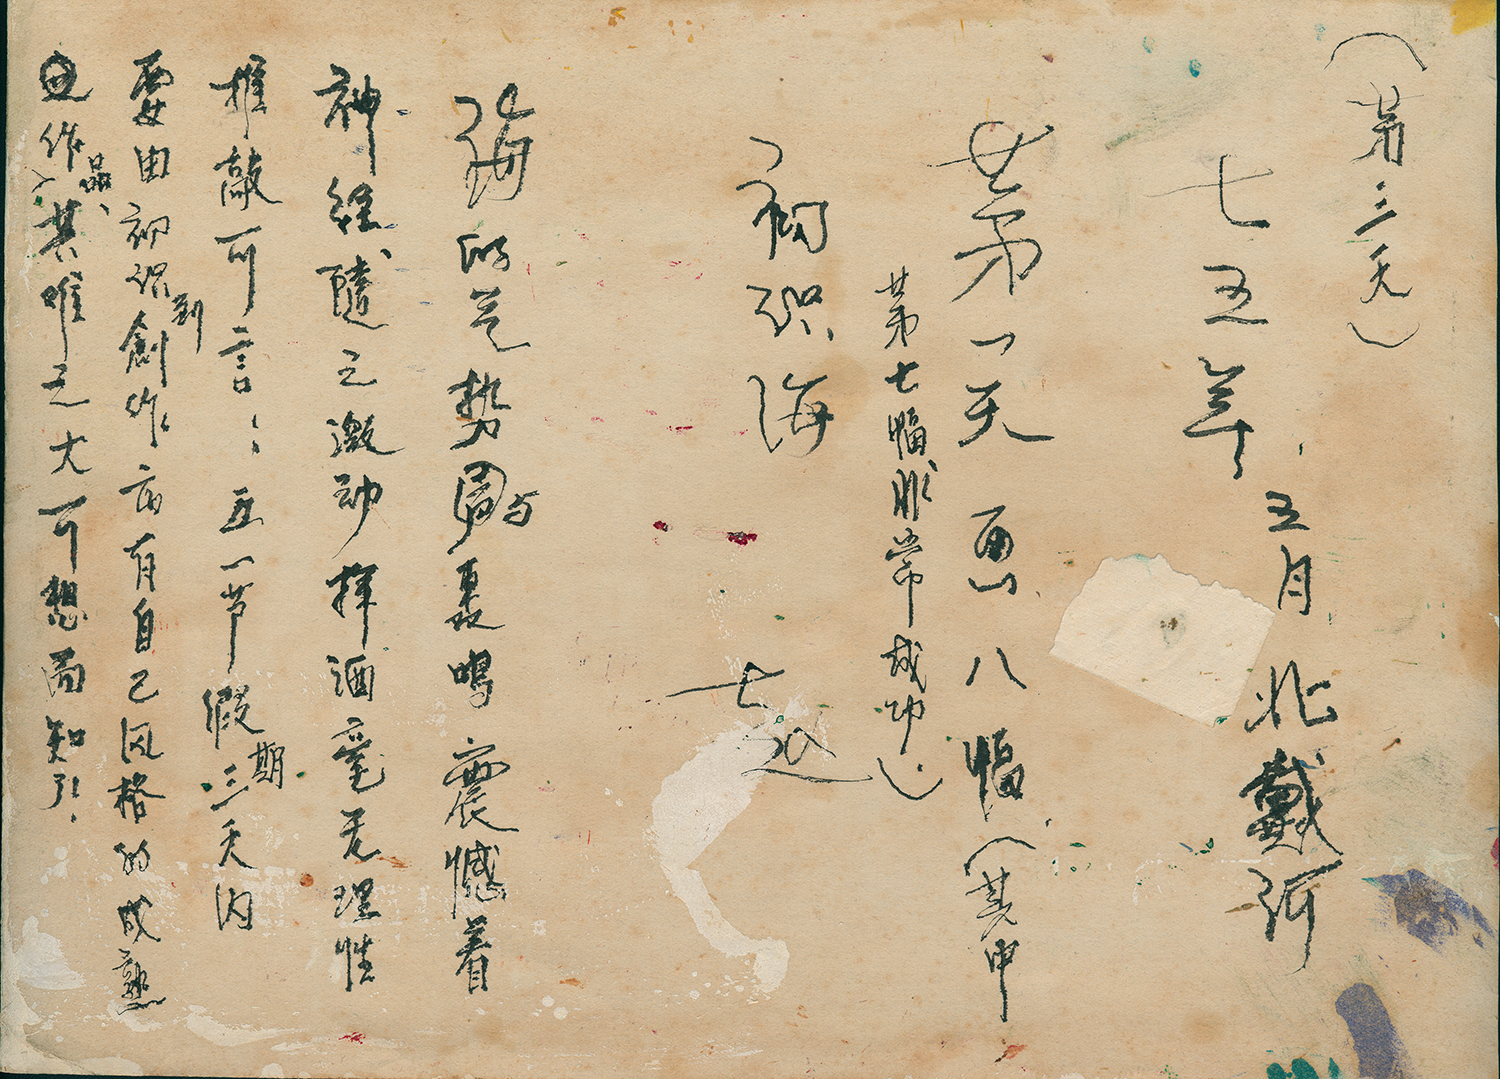 （第三天）
七五年
五月北戴河
第一天画八幅（其中
第七幅非常成功）
初识海
海的气势与轰鸣震憾着
神经随之激动挥洒毫无理性
推敲可言：五一节假期三天内
要由初识到创作亦有自己风格的成熟
作品、其难之大可想而知了！